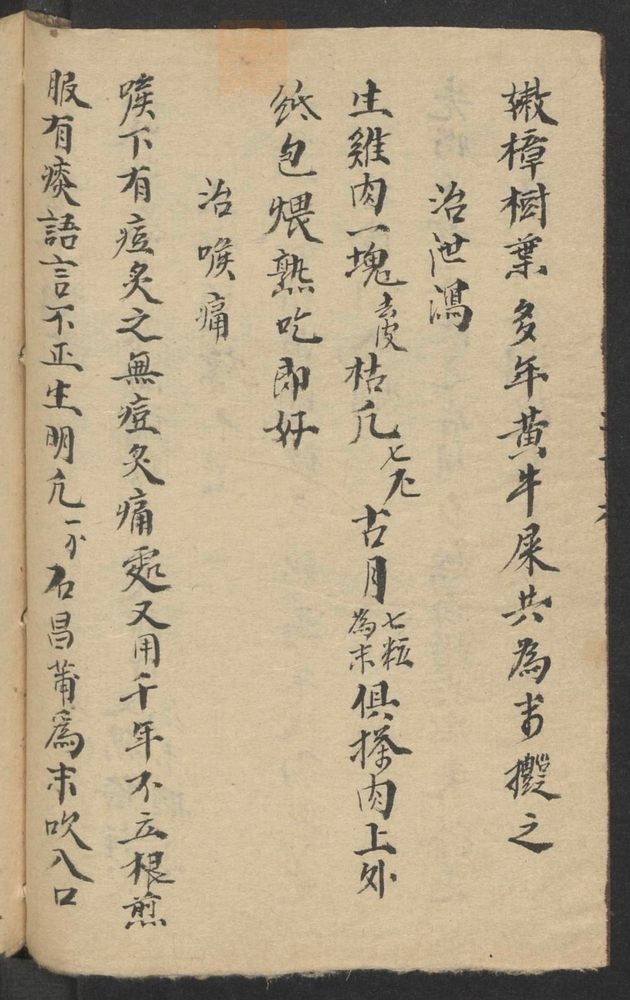 嫩樟樹葉多年黃牛屎共為末擬之
治泄瀉
生雞肉一塊去皮枯凢七厘古月七粒為末俱搽肉上外
紙包煨熟吃即好
治喉痛
喉下有痘炙之無痘炙痛處又用千年不立根煎
服有痰語言不正生明凢一分石昌莆為末吹入口